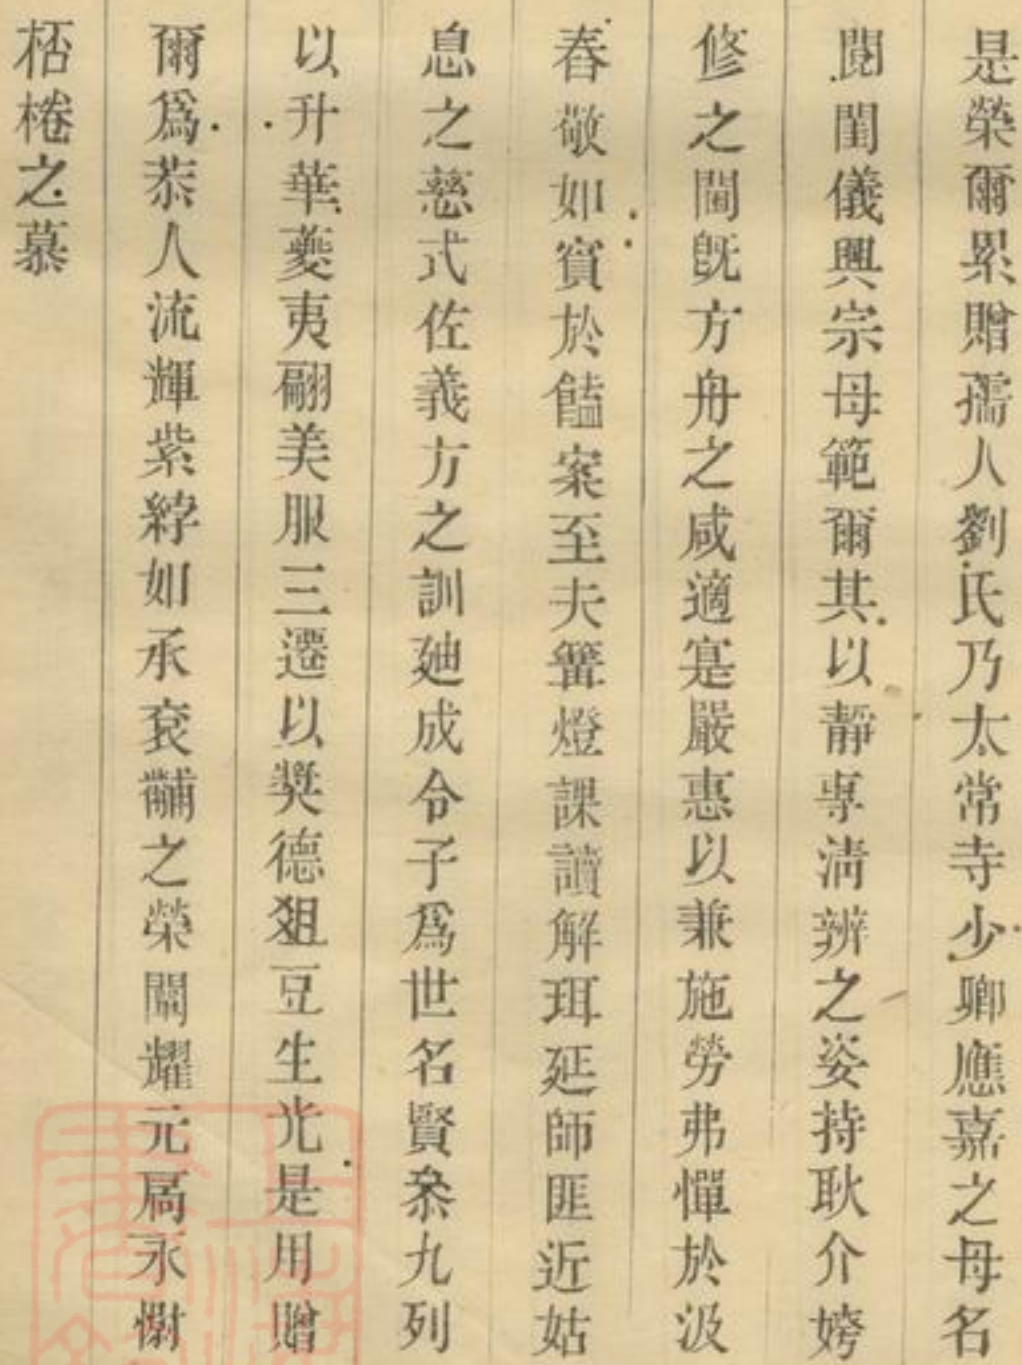 是榮爾累贈孺人劉氏乃太常寺少卿應嘉之母名
閱閨儀興宗母範爾其以靜專淸辨之姿持耿介姱
修之閫旣方舟之咸適寔嚴惠以兼施勞弗憚於汲
舂敬如賓於饁案至夫篝燈課讀解珥延師匪近姑
息之慈式佐義方之訓廸成令子爲世名賢叅九列
以升華藑夷翩美服三遷以奬德俎豆生光是用贈
爾爲恭人流輝紫綍如承袞黼之榮闡耀元扃永慰
桮棬之慕